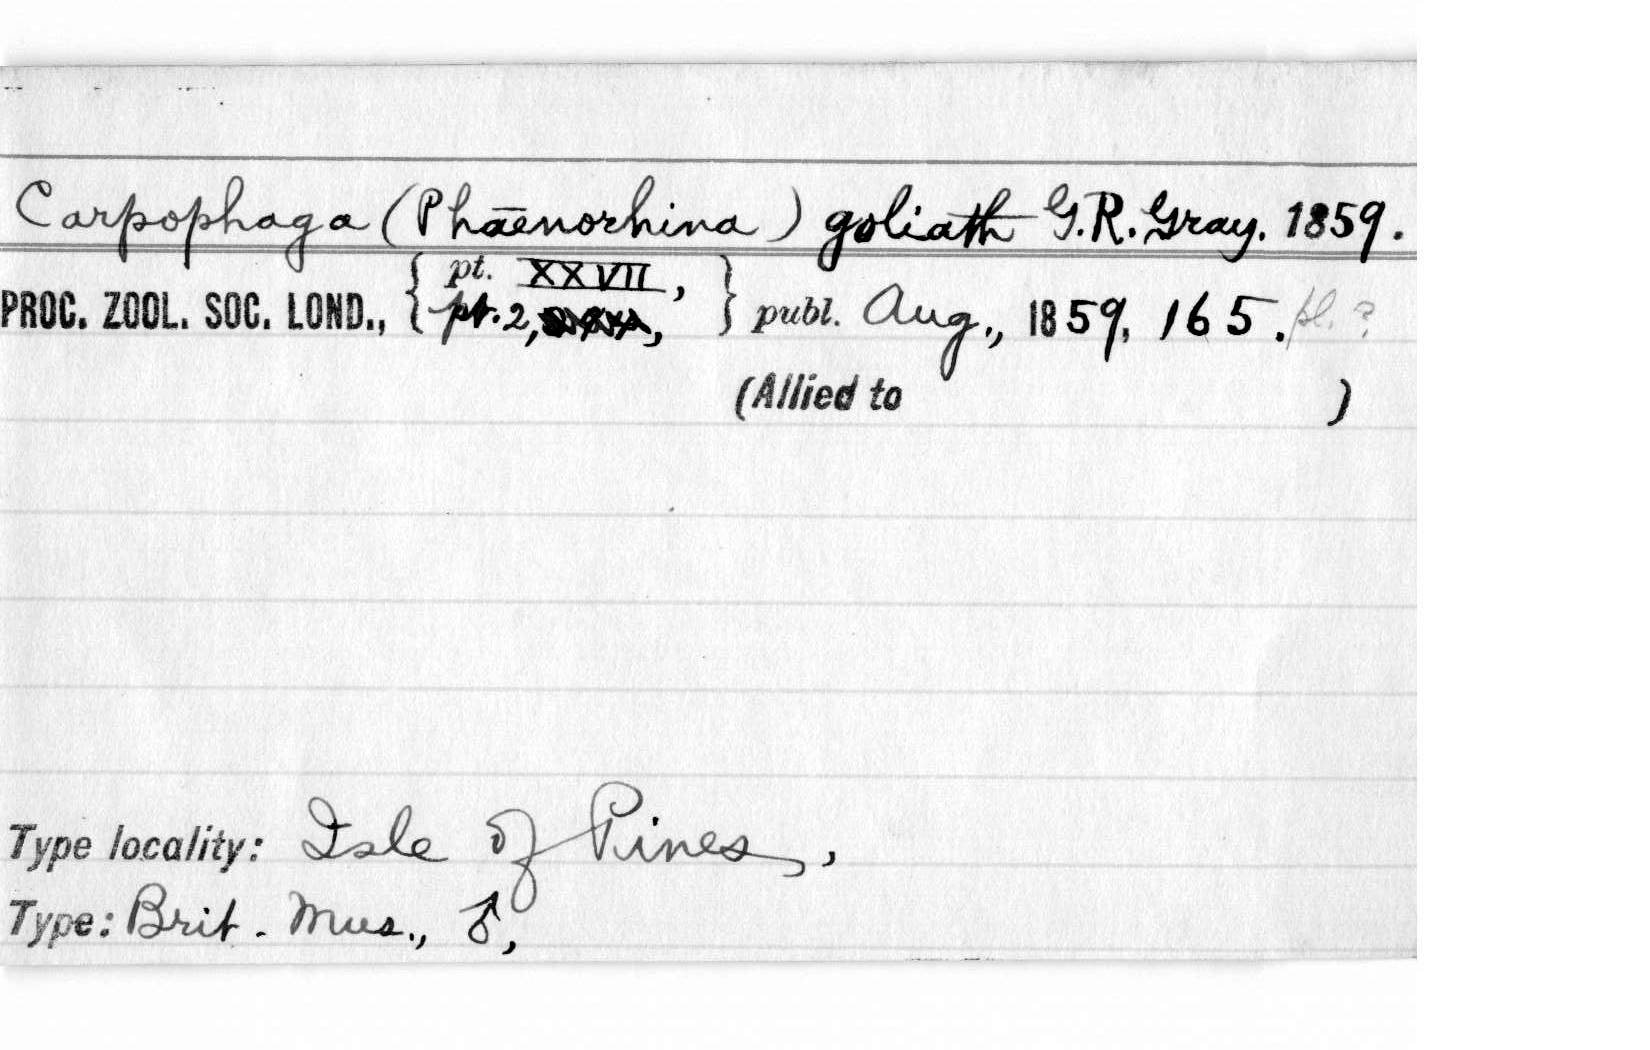 Carpophaga (Phāenorhina) goliath G.R. Gray. 1859.
PROC. ZOOL. SOC. LOND., { pt. XXVII, pt. 2, } publ. Aug., 1859, 165. pl. ?
(Allied to )
Type locality: Isle of Pines,
Type: Brit. Mus., ♂,